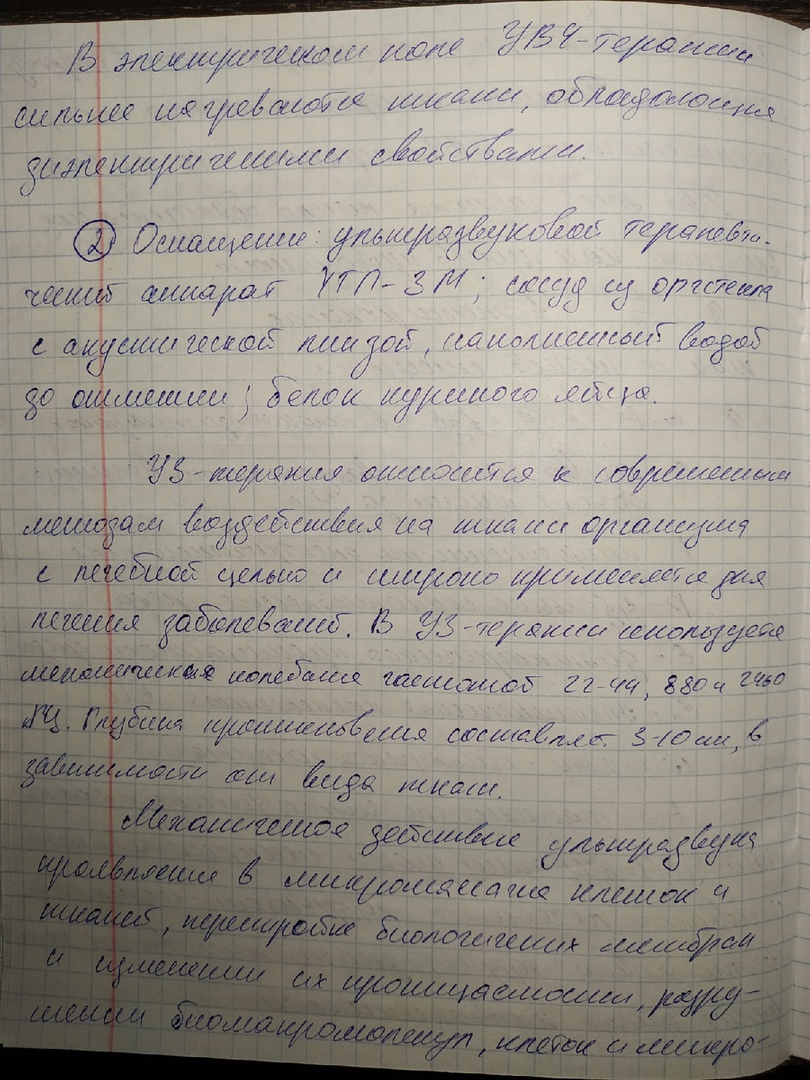 В электрическом поле УВЧ-терапии
сильнее нагреваются ткани, обладающие
диэлектричекими свойствами.
② Оснащение: ультразвуковой терапевти-
ческий аппарат УТП-3М; сосуд из оргстекла
с акустической линзой, наполненный водой
до отметки; белок куриного яйца.
УЗ-терапия относится к современным
методам воздействия на ткани организма
с лечебной целью и широко применяется для
лечения заболеваний. В УЗ-терапии используется
механическая колебания частотой 22-44, 880 и 2460
кГц. Глубина проникновения составляет 3-10 см, в
зависимости от вида ткани.
Механическое действие ультразвука
проявление в микромассаже клеток и
тканей, перестройке биологических мембран
и изменении их проницаемости, разру-
шении биомакромолекул, клеток и микро-